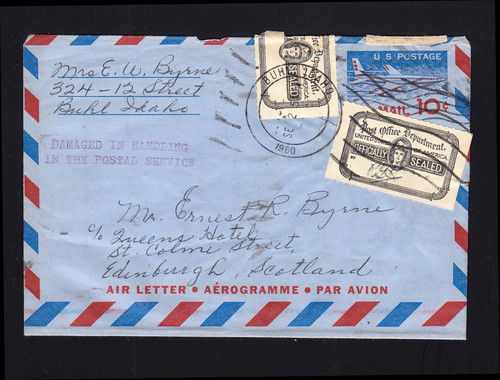 Mrs E. W. Byrne
324-12 Street
Buhl Idaho
DAMAGED IN HANDLING
IN THE POSTAL SERVICE
BUHL, IDAHO
SE
2
1960
SEALED
U S POSTAGE
MAIL 10¢
Post Office Department.
UNITED OF AMERICA
OFFICIALLY SEALED
Mr. Ernest R. Byrne
c/o Queens Hotel,
St. Colme Street,
Edinburgh, Scotland
AIR LETTER • AÉROGRAMME • PAR AVION